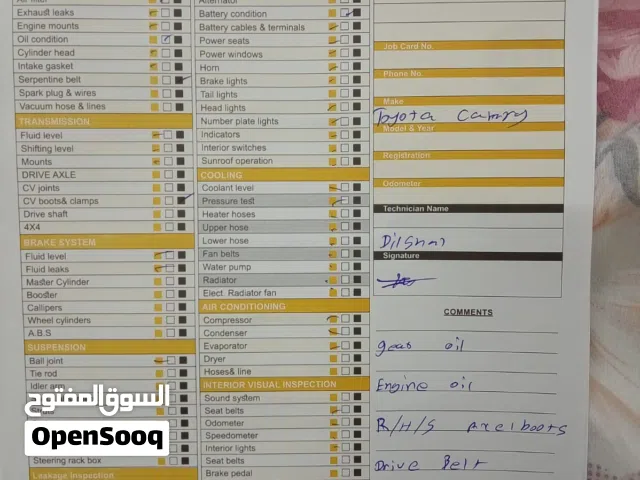 Exhaust leaks
Engine mounts
Oil condition
Cylinder head
Intake gasket
Serpentine belt
Spark plug & wires
Vacuum hose & lines
TRANSMISSION
Fluid level
Shifting level
Mounts
DRIVE AXLE
CV joints
CV boots& clamps
Drive shaft
4X4
BRAKE SYSTEM
Fluid level
Fluid leaks
Master Cylinder
Booster
Callipers
Wheel cylinders
A.B.S
SUSPENSION
Ball joint
Tie rod
Idler arm
Struts
Steering rack box
Leakage Inspection
Alternator
Battery condition
Battery cables & terminals
Power seats
Power windows
Horn
Brake lights
Tail lights
Head lights
Number plate lights
Indicators
Interior switches
Sunroof operation
COOLING
Coolant level
Pressure test
Heater hoses
Upper hose
Lower hose
Fan belts
Water pump
Radiator
Elect. Radiator fan
AIR CONDITIONING
Compressor
Condenser
Evaporator
Dryer
Hoses& line
INTERIOR VISUAL INSPECTION
Sound system
Seat belts
Odometer
Speedometer
Interior lights
Seat belts
Brake pedal
Job Card No.
Phone No.
Make
Toyota Camry
Model & Year
Registration
Odometer
Technician Name
Dilshan
Signature
COMMENTS
gear oil
Engine oil
R/H/S axelboots
Drive Belt
السوق المفتوح
OpenSooq